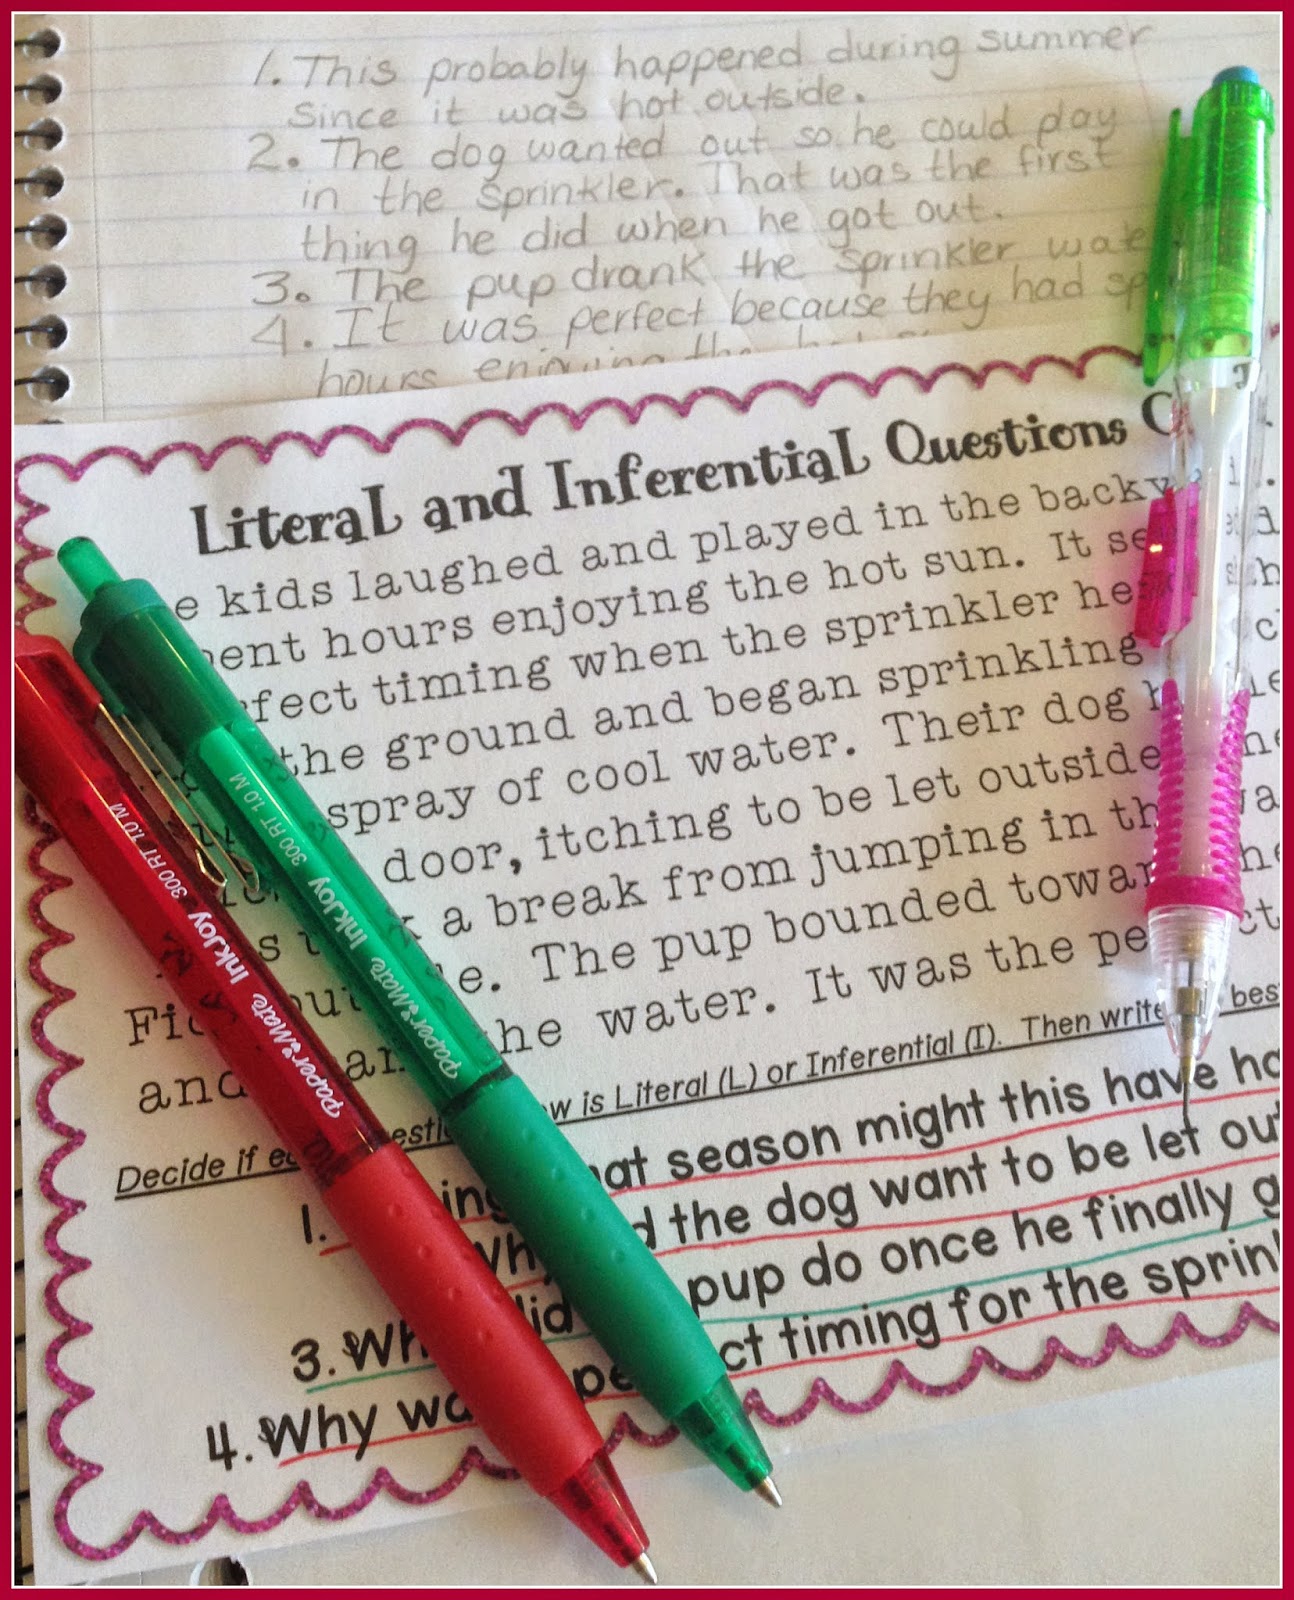 1. This probably happened during summer
since it was hot outside.
2. The dog wanted out so he could play
in the sprinkler. That was the first
thing he did when he got out.
3. The pup drank the sprinkler
4. It was perfect because they had
hours enjoying the
Literal and Inferential Questions
kids laughed and played in the
hours enjoying the hot sun. It
timing when the sprinkler
the ground and began sprinkling
spray of cool water. Their dog
door, itching to be let outside
a break from jumping in
The pup bounded
water. It was the
and
Decide if is Literal (L) or Inferential (I). Then write
1. season might this have
the dog want to be let
3. pup do once he finally
4. Why timing for the
Paper Mate InkJoy 300 RT 1.0 M
Paper Mate InkJoy 300 RT 1.0 M